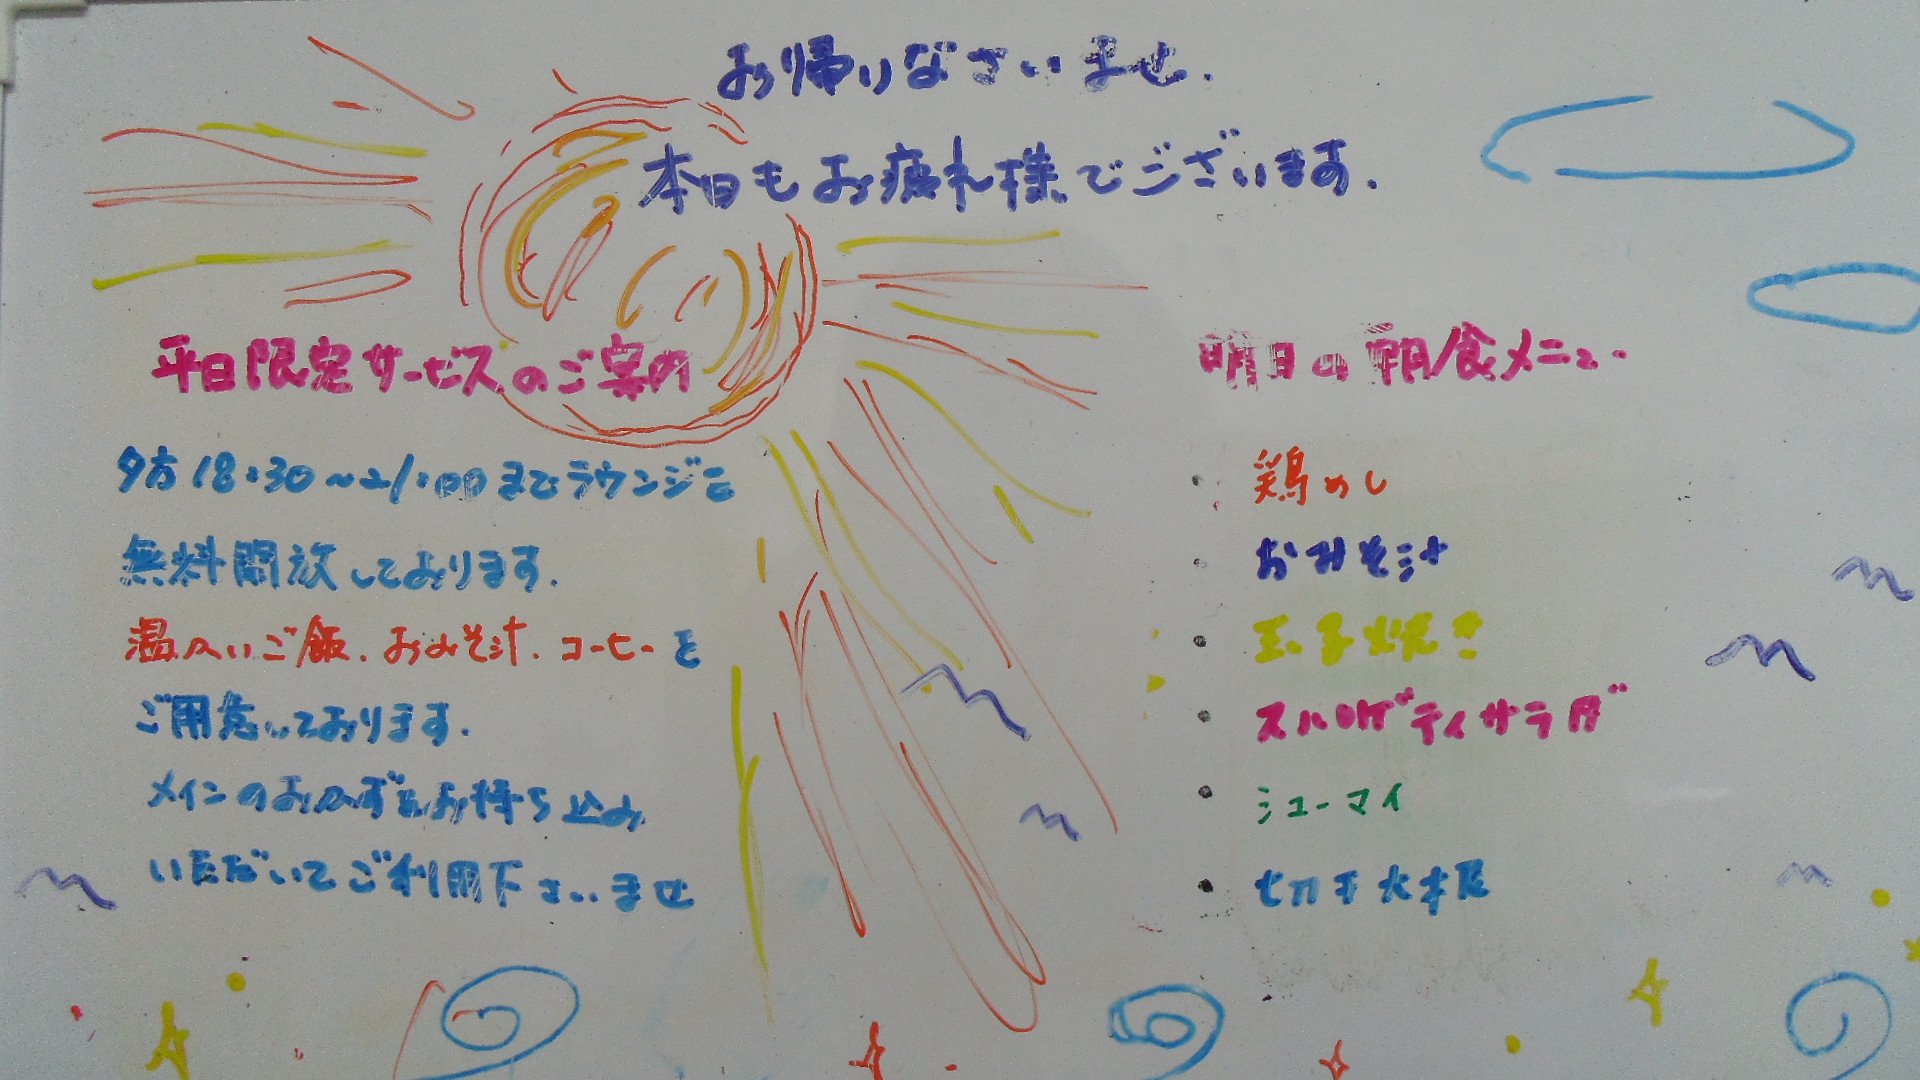 お帰りなさいませ.
本日もお疲れ様でございます.
平日限定サービスのご案内
夕方18:30~21:00までラウンジを
無料開放しております.
温かいご飯.おみそ汁.コーヒーを
ご用意しております.
メインのおかずをお持ち込み
いただいてご利用下さいませ
明日の朝食メニュー
・鶏めし
・おみそ汁
・玉子焼き
・スパゲティサラダ
・シューマイ
・切干大根